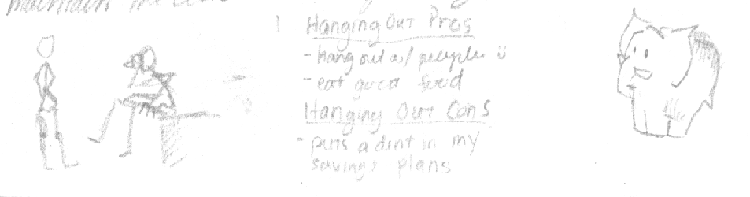 maintain the
Hanging Out Pros
- hang out w/ people
- eat good food
Hanging Out Cons
- puts a dent in my
savings plans